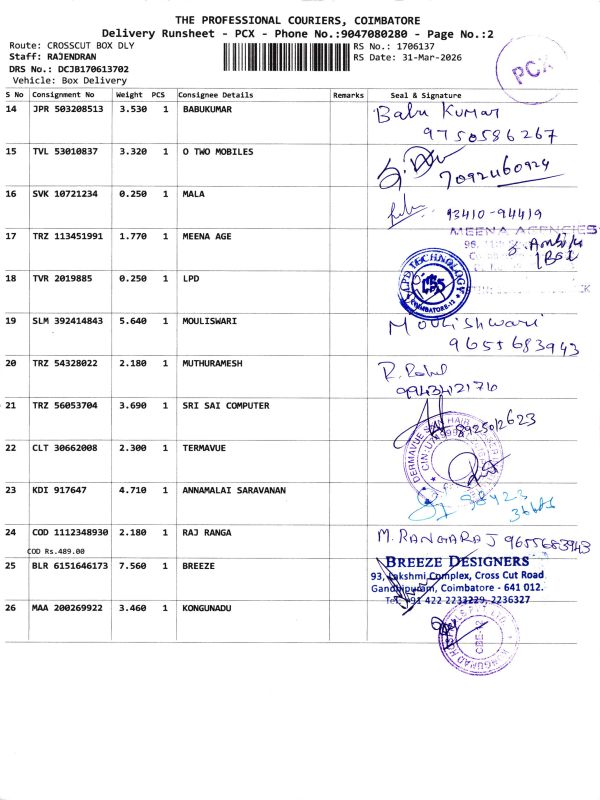 THE PROFESSIONAL COURIERS, COIMBATORE
Delivery Runsheet - PCX - Phone No.:9047080280 - Page No.:2
Route: CROSSCUT BOX DLY
Staff: RAJENDRAN
DRS No.: DCJB170613702
Vehicle: Box Delivery
RS No.: 1706137
RS Date: 31-Mar-2026
PCX
S No Consignment No Weight PCS Consignee Details Remarks Seal & Signature
14 JPR 503208513 3.530 1 BABUKUMAR Babu Kumar
9750586267
15 TVL 53010837 3.320 1 O TWO MOBILES
7092460924
16 SVK 10721234 0.250 1 MALA 93410-94419
17 TRZ 113451991 1.770 1 MEENA AGE MEENA AGENCIES
18 TVR 2019885 0.250 1 LPD LPD TECHNOLOGY
COIMBATORE-12
19 SLM 392414843 5.640 1 MOULISWARI Moulishwari
9655683943
20 TRZ 54328022 2.180 1 MUTHURAMESH
21 TRZ 56053704 3.690 1 SRI SAI COMPUTER
22 CLT 30662008 2.300 1 TERMAVUE DERMAVUE SKIN HAIR
23 KDI 917647 4.710 1 ANNAMALAI SARAVANAN
24 COD 1112348930 2.180 1 RAJ RANGA M. RANGARAJ 9655683943
COD Rs.489.00
25 BLR 6151646173 7.560 1 BREEZE BREEZE DESIGNERS
93, Lakshmi Complex, Cross Cut Road
Gandhipuram, Coimbatore - 641 012.
Tel: +91 422 2233229, 2236327
26 MAA 200269922 3.460 1 KONGUNADU